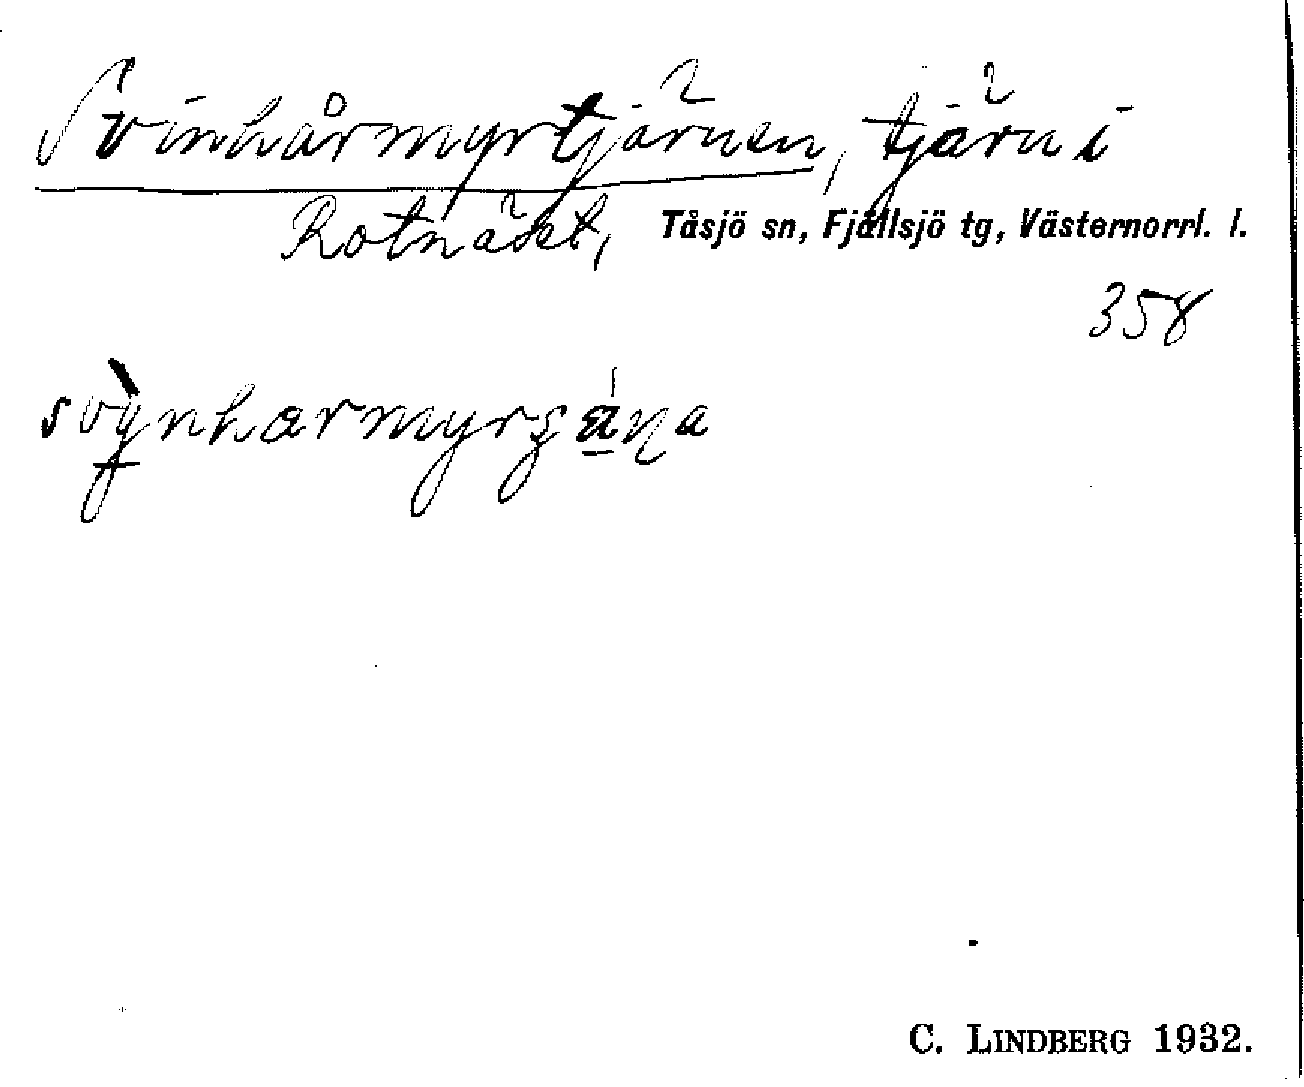 Svinhårmyrtjärnen, tjärn i
Rotnäset, Tåsjö sn, Fjällsjö tg, Västernorrl. l.
358
C. LINDBERG 1932.